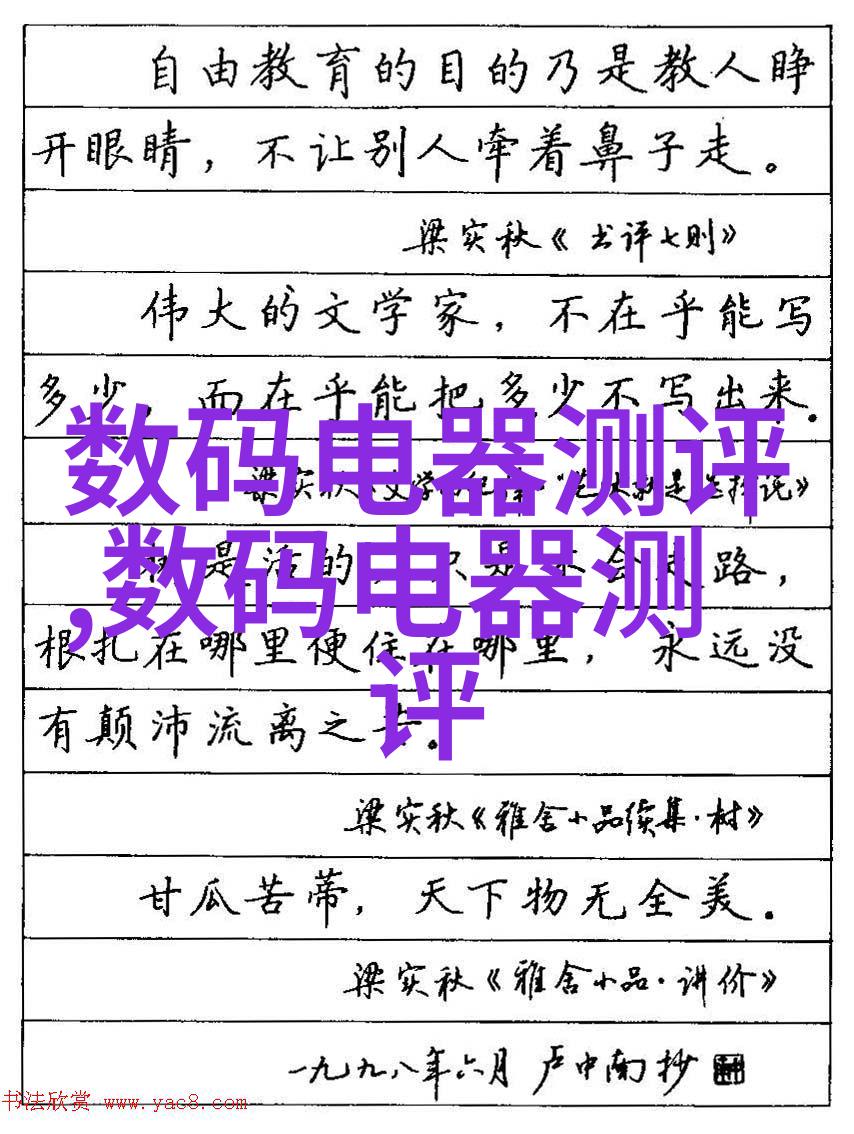 自由教育的目的乃是教人睁
开眼睛，不让别人牵着鼻子走。
梁实秋《书评七则》
伟大的文学家，不在乎能写
多少，而在乎能把多少不写出来.
数码电器测评
梁实秋
是活的 只是不会走路，
,数码电器测
根扎在哪里便住在哪里， 永远没
评
有颠沛流离之苦。
梁实秋《雅舍小品续集·树》
甘瓜苦蒂，天下物无全美.
梁实秋《雅舍小品·讲价》
一九九八年六月 卢中南抄
书法欣赏 www.yac8.com